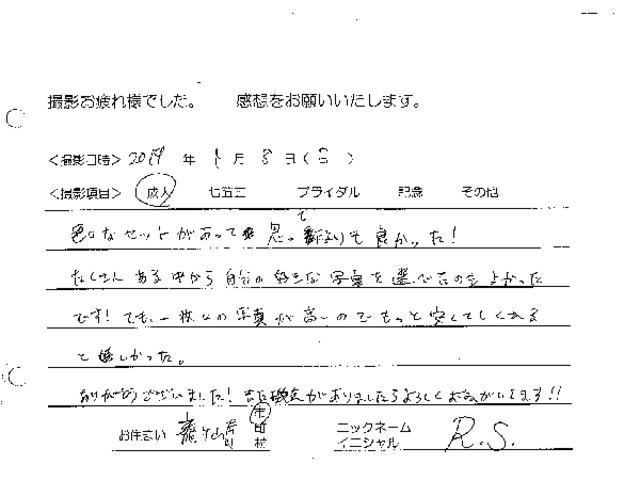 撮影お疲れ様でした。 感想をお願いいたします。
<撮影日時> 2019 年 1 月 8 日(日)
<撮影項目> 成人 七五三 ブライダル 記念 その他
色々なセットがあって 思ってたよりも良かった!
たくさんある中から自分の好きな写真を選べたのもよかった
です!でも、一枚々の写真が高いのでもっと安くしてくれる
と嬉しかった。
ありがとうございました!また機会がありましたらよろしくおねがいします!!
お住まい 龍ケ崎 市 町 村 ニックネーム イニシャル R.S.